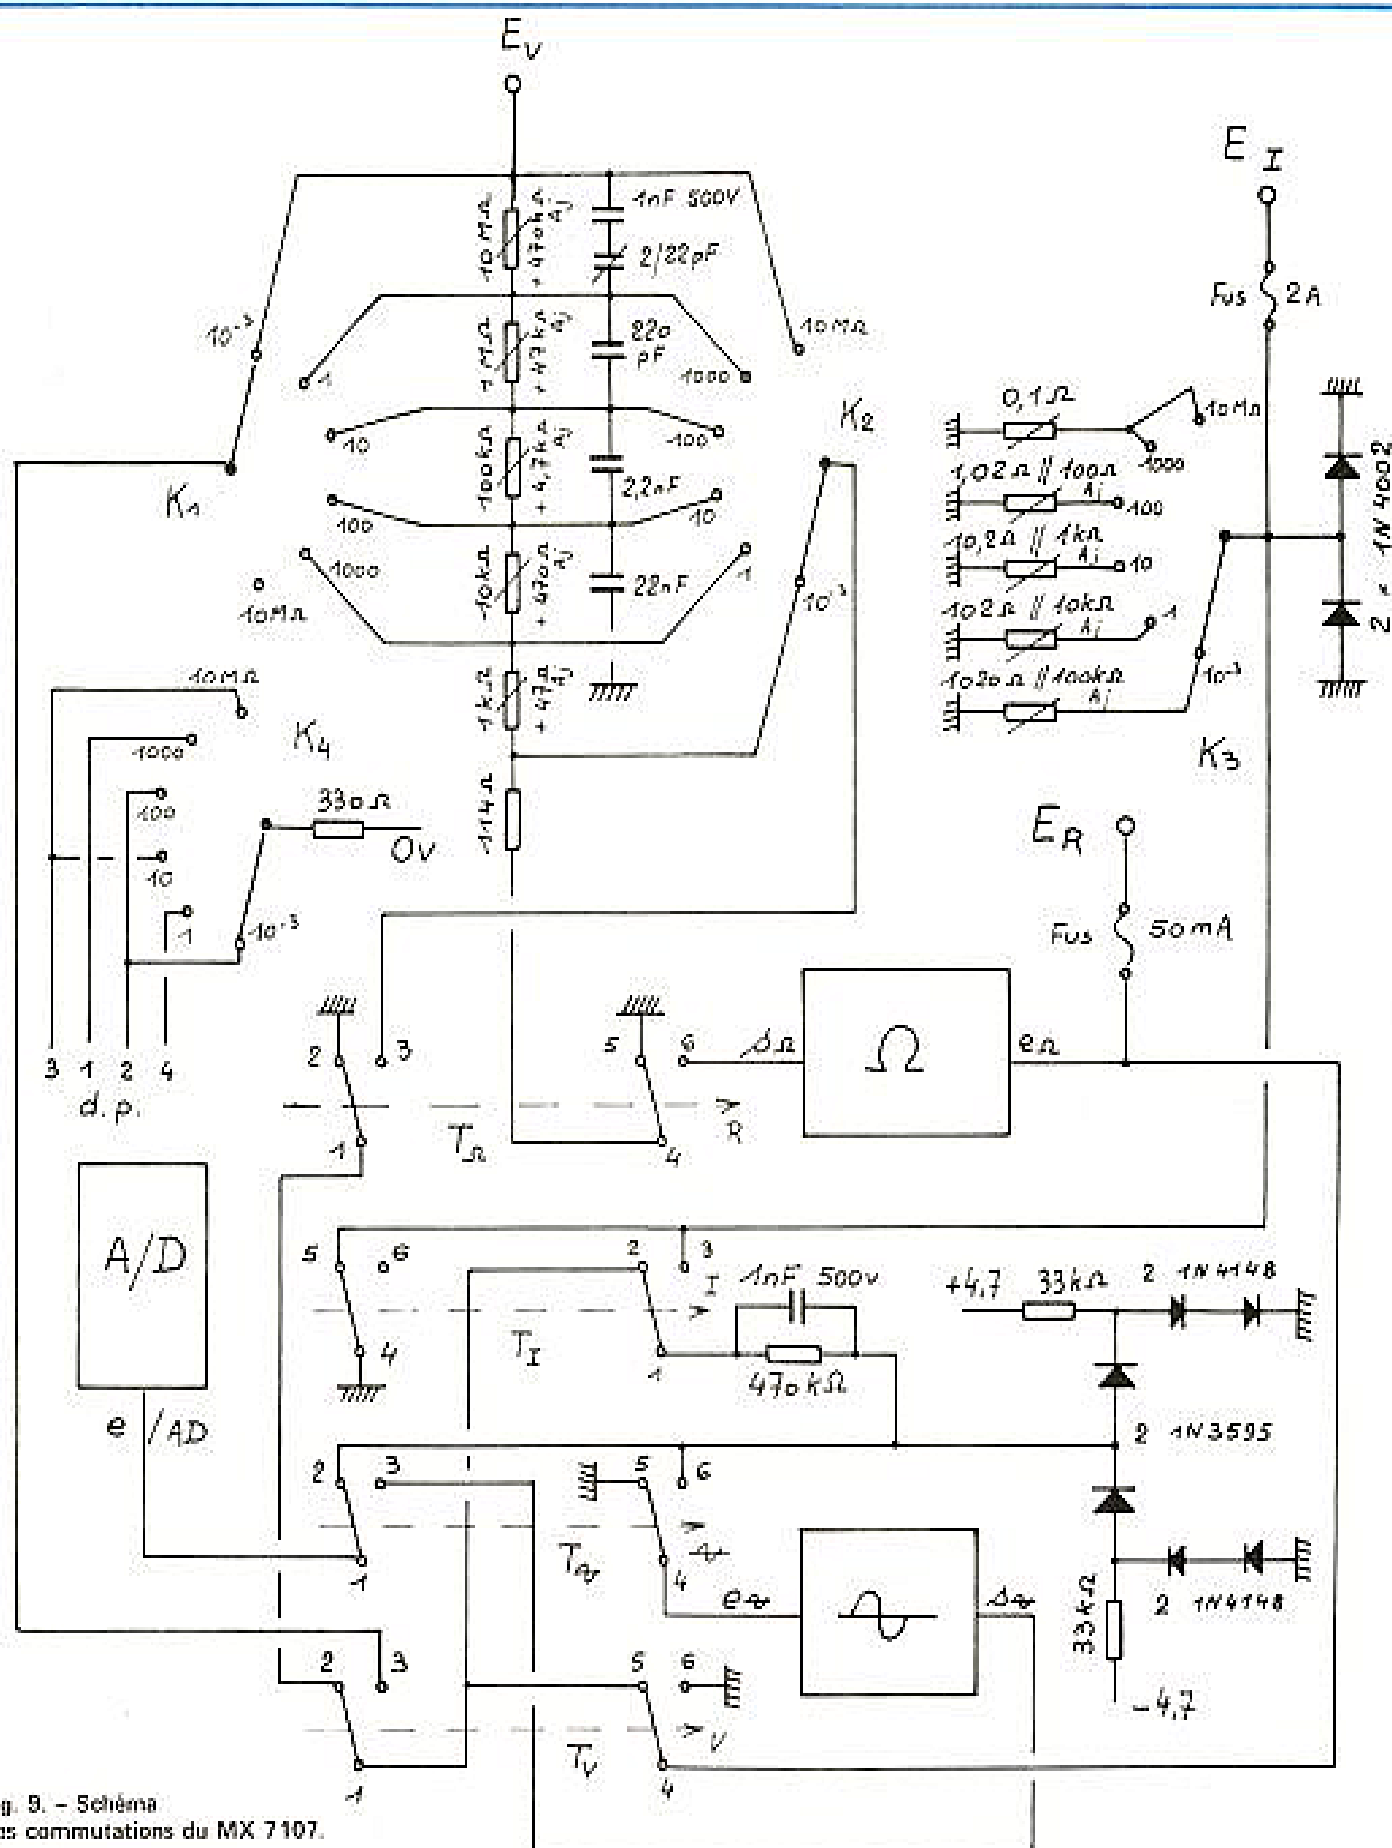 E V
10MΩ
+ 470kΩ Aj
1nF 500V
2/22pF
E I
Fus 2A
10⁻³
1
1MΩ
+ 47kΩ Aj
220 pF
1000
10MΩ
10
100kΩ
+ 4,7kΩ Aj
100
K2
K1
2,2nF
100
10
1000
10kΩ
+ 470Ω Aj
22nF
1
10⁻³
10MΩ
1kΩ
+ 47Ω Aj
0,1Ω
10MΩ
1000
1,02Ω // 100Ω
Aj
100
10,2Ω // 1kΩ
Aj
10
102Ω // 10kΩ
Aj
1
1020Ω // 100kΩ
Aj
10⁻³
K3
2 × 1N 4002
10MΩ
1000
K4
100
330Ω
0v
10
10⁻³
1
114Ω
E R
Fus 50mA
3 1 2 4
d.p.
2 3
5 6
sΩ
Ω
eΩ
1
TΩ
4
R
A/D
e /AD
5 6
2 3
I
1nF 500v
4
T I
1
470kΩ
+4,7 33kΩ 2 1N4148
2 1N3595
2 3
5 6
1
T~
4
~
e~
s~
33kΩ
2 1N4148
-4,7
2 3
5 6
1
T V
4
V
g. 9. – Schéma
es commutations du MX 7107.